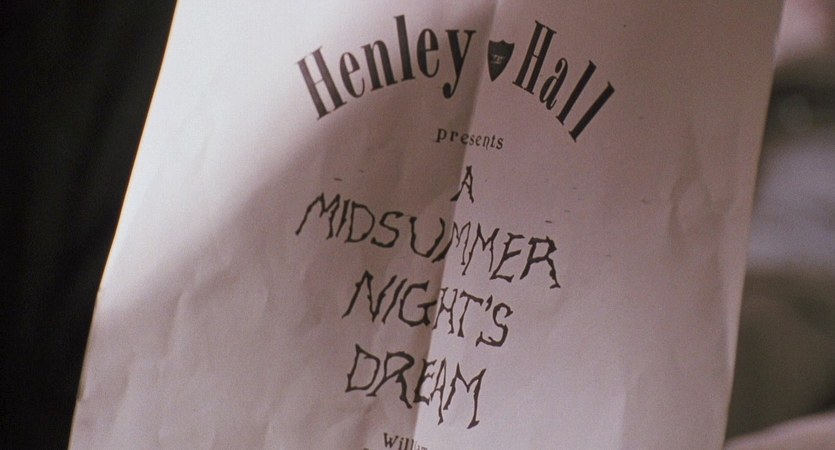 Henley Hall
presents
A
MIDSUMMER
NIGHT'S
DREAM